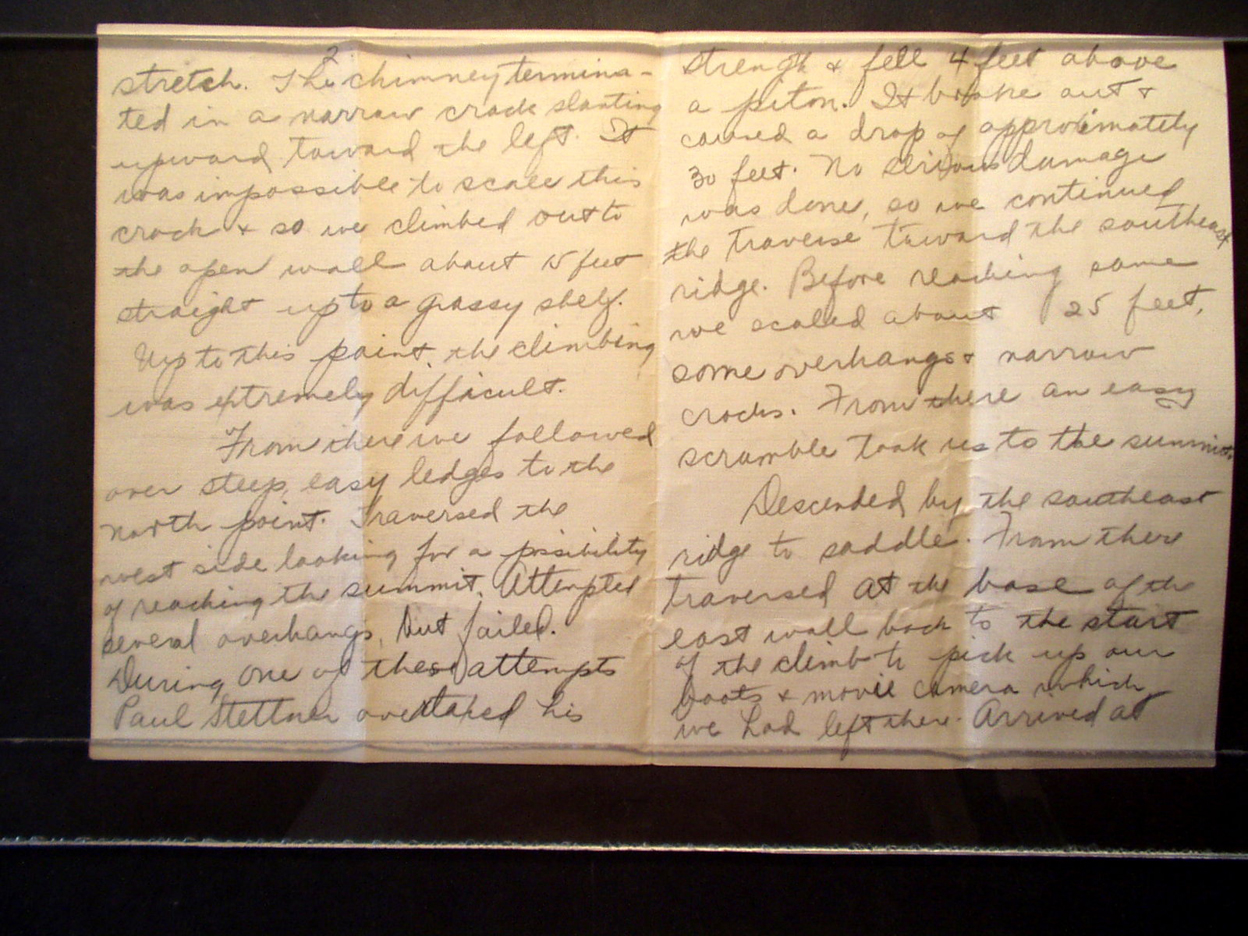 2
stretch. The chimney termina-
ted in a narrow crack slanting
upward toward the left. It
was impossible to scale this
crack & so we climbed out to
the open wall about 15 feet
straight up to a grassy shelf.
Up to this point the climbing
was extremely difficult.
From there we followed
over steep, easy ledges to the
north point. Traversed the
west side looking for a possibility
of reaching the summit. Attempted
several overhangs, but failed.
During one of these attempts
Paul Stettner overtaxed his
strength & fell 4 feet above
a piton. It broke out &
caused a drop of approximately
30 feet. No serious damage
was done, so we continued
the traverse toward the southeast
ridge. Before reaching same
we scaled about 25 feet,
some overhangs & narrow
cracks. From there an easy
scramble took us to the summit.
Descended by the southeast
ridge to saddle. From there
traversed at the base of the
east wall back to the start
of the climb to pick up our
boots & movie camera which
we had left there. Arrived at